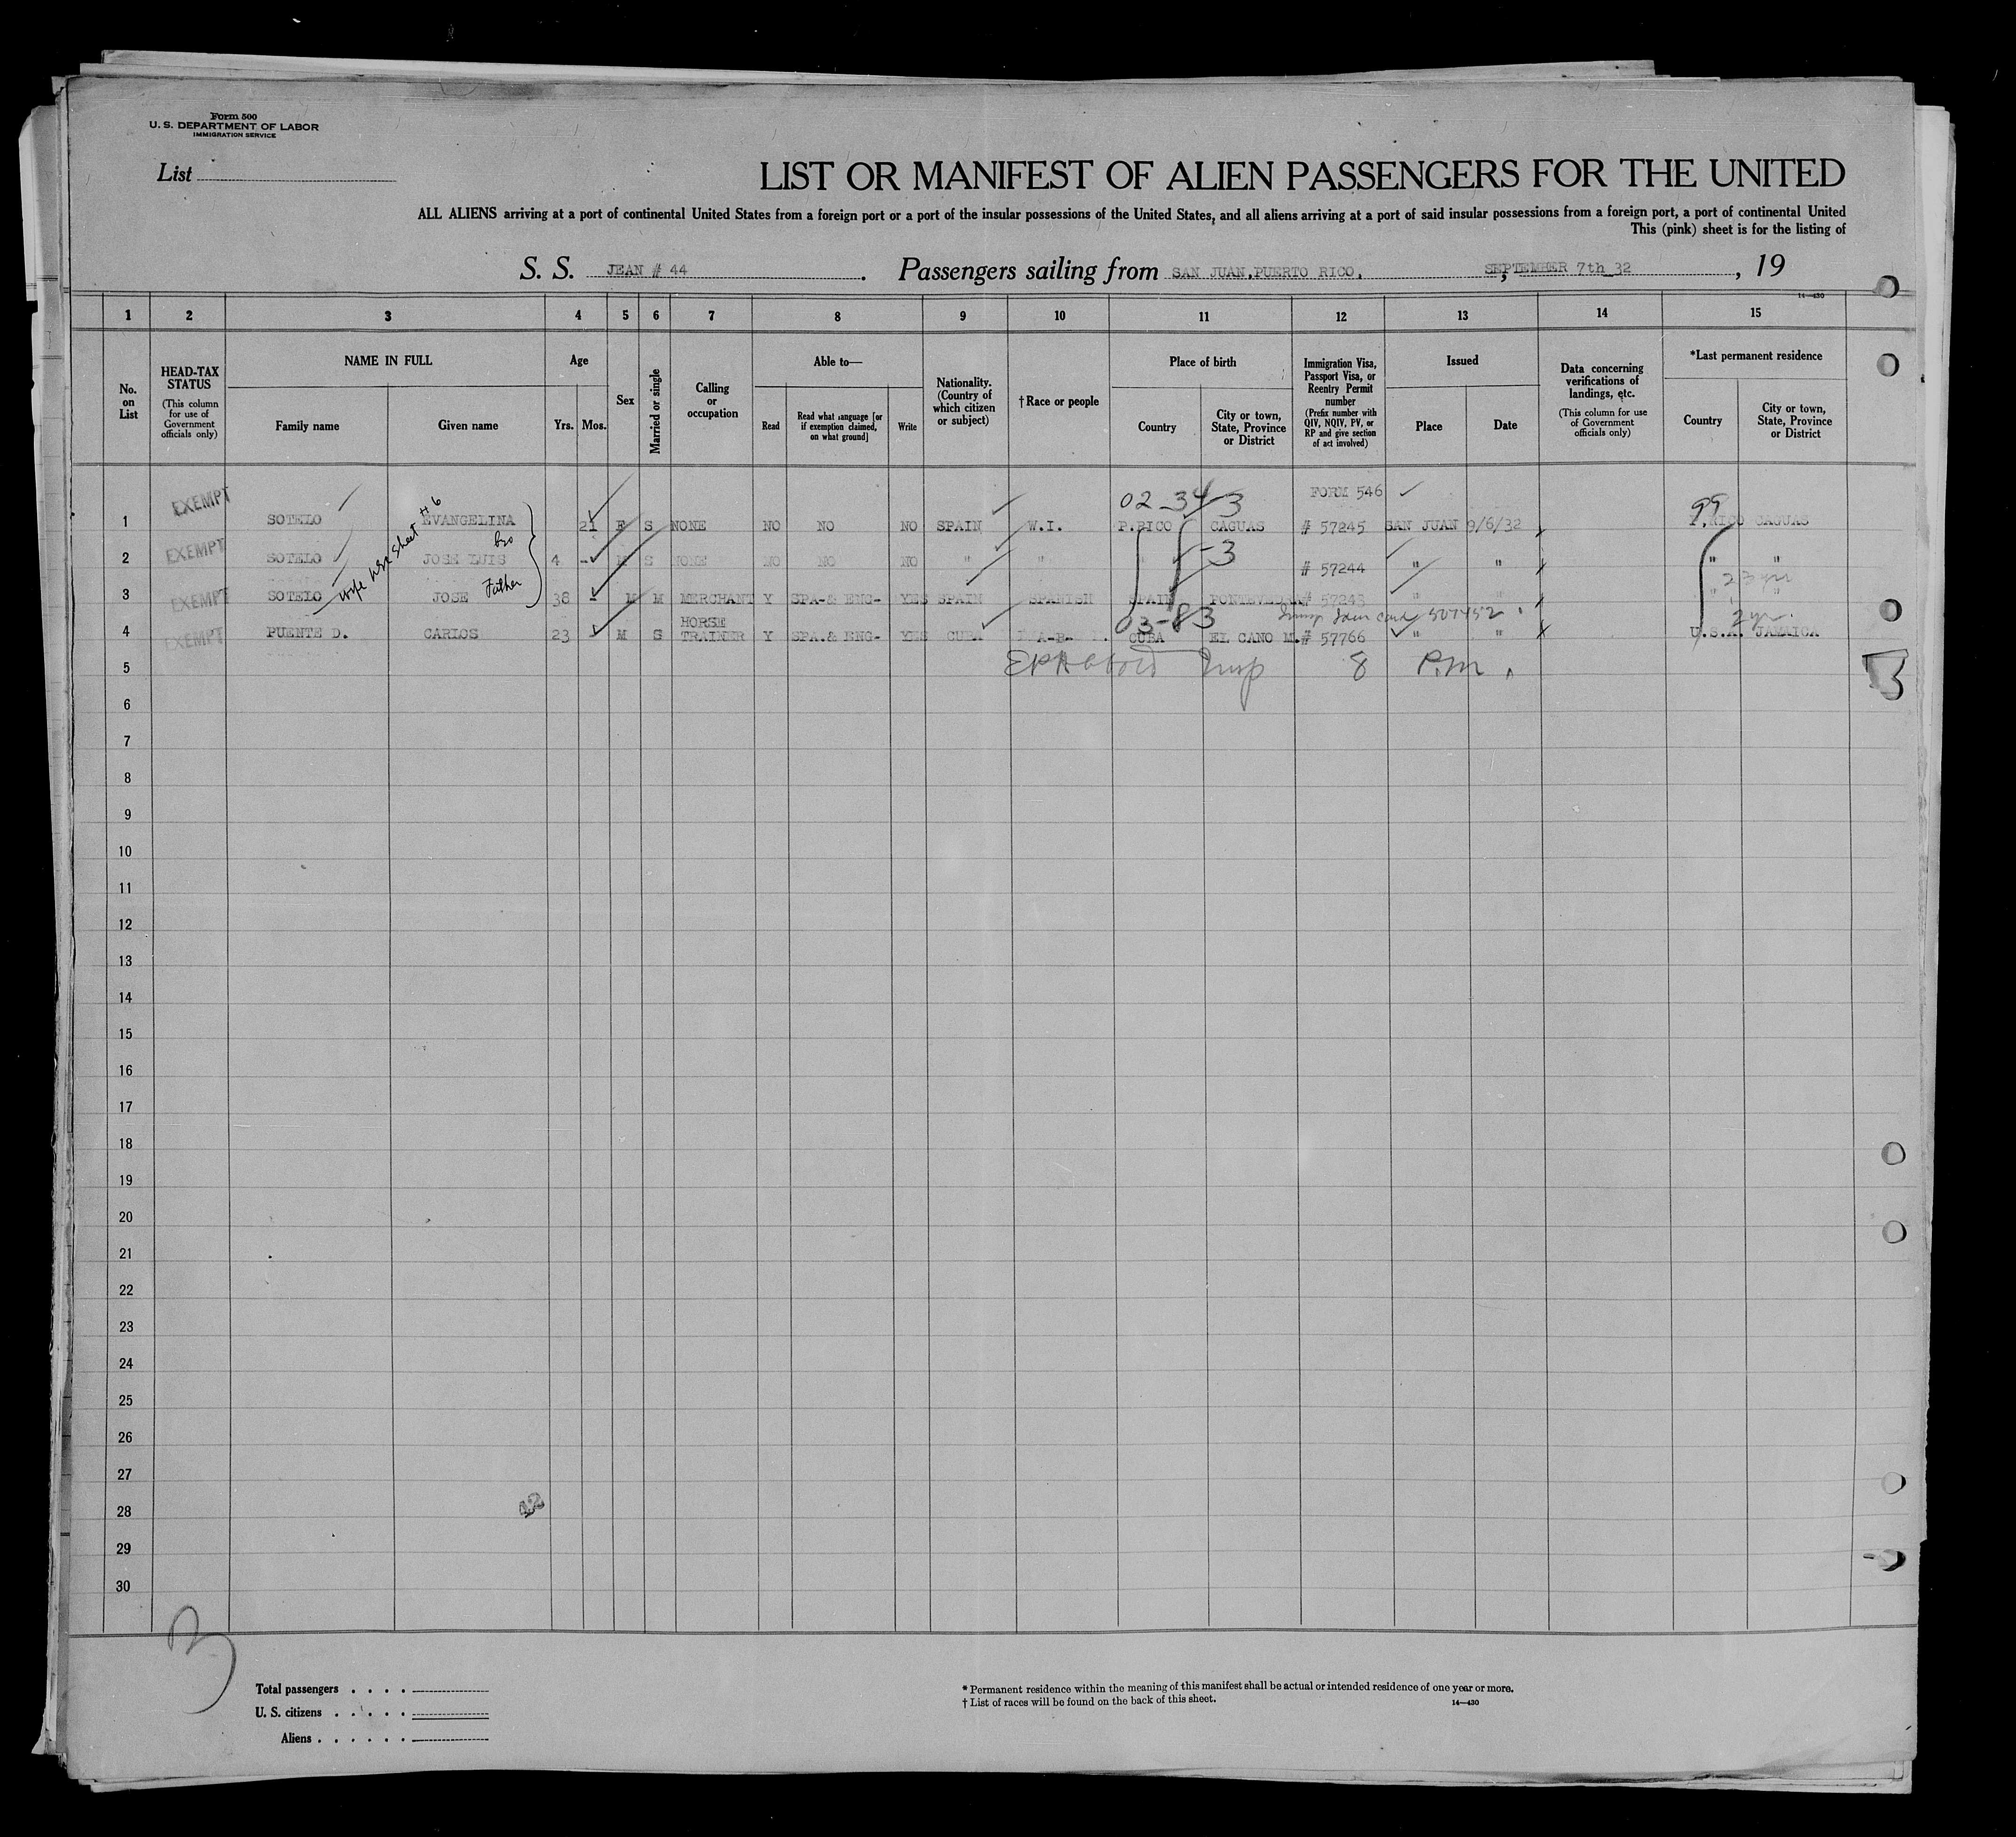 Form 500
U. S. DEPARTMENT OF LABOR
IMMIGRATION SERVICE
List
LIST OR MANIFEST OF ALIEN PASSENGERS FOR THE UNITED
ALL ALIENS arriving at a port of continental United States from a foreign port or a port of the insular possessions of the United States, and all aliens arriving at a port of said insular possessions from a foreign port, a port of continental United
This (pink) sheet is for the listing of
S. S. JEAN # 44. Passengers sailing from SAN JUAN, PUERTO RICO, SEPTEMBER 7th 32, 19
14—430
1 2 3 4 5 6 7 8 9 10 11 12 13 14 15
No. on List
HEAD-TAX STATUS
(This column for use of Government officials only)
NAME IN FULL
Family name
Given name
Age
Yrs. Mos.
Sex
Married or single
Calling or occupation
Able to—
Read
Read what language [or if exemption claimed, on what ground]
Write
Nationality. (Country of which citizen or subject)
†Race or people
Place of birth
Country
City or town, State, Province or District
Immigration Visa, Passport Visa, or Reentry Permit number
(Prefix number with QIV, NQIV, PV, or RP and give section of act involved)
Issued
Place
Date
Data concerning verifications of landings, etc.
(This column for use of Government officials only)
*Last permanent residence
Country
City or town, State, Province or District
02-34/3 FORM 546 99
1 EXEMPT SOTELO EVANGELINA 21 F S NONE NO NO NO SPAIN W.I. P.RICO CAGUAS # 57245 SAN JUAN 9/6/32 P.RICO CAGUAS
wife USC sheet #6
bro
-3
2 EXEMPT SOTELO JOSE LUIS 4 - M S NONE NO NO NO " " " # 57244 " " " "
Father
23 yrs
3 EXEMPT SOTELO JOSE 38 - M M MERCHANT Y SPA-& ENG- YES SPAIN SPANISH SPAIN PONTEVEDRA # 57243 " " " "
03-83 507452 2 yr.
4 EXEMPT PUENTE D. CARLOS 23 M S HORSE TRAINER Y SPA.& ENG- YES CUBA CUBA EL CANO M. # 57766 " " U.S.A. JAMAICA
5 Insp 8 P.M.
6
7
8
9
10
11
12
13
14
15
16
17
18
19
20
21
22
23
24
25
26
27
28
29
30
3
Total passengers . . . .
U. S. citizens . . . . .
Aliens . . . . . .
* Permanent residence within the meaning of this manifest shall be actual or intended residence of one year or more.
† List of races will be found on the back of this sheet.
14—430